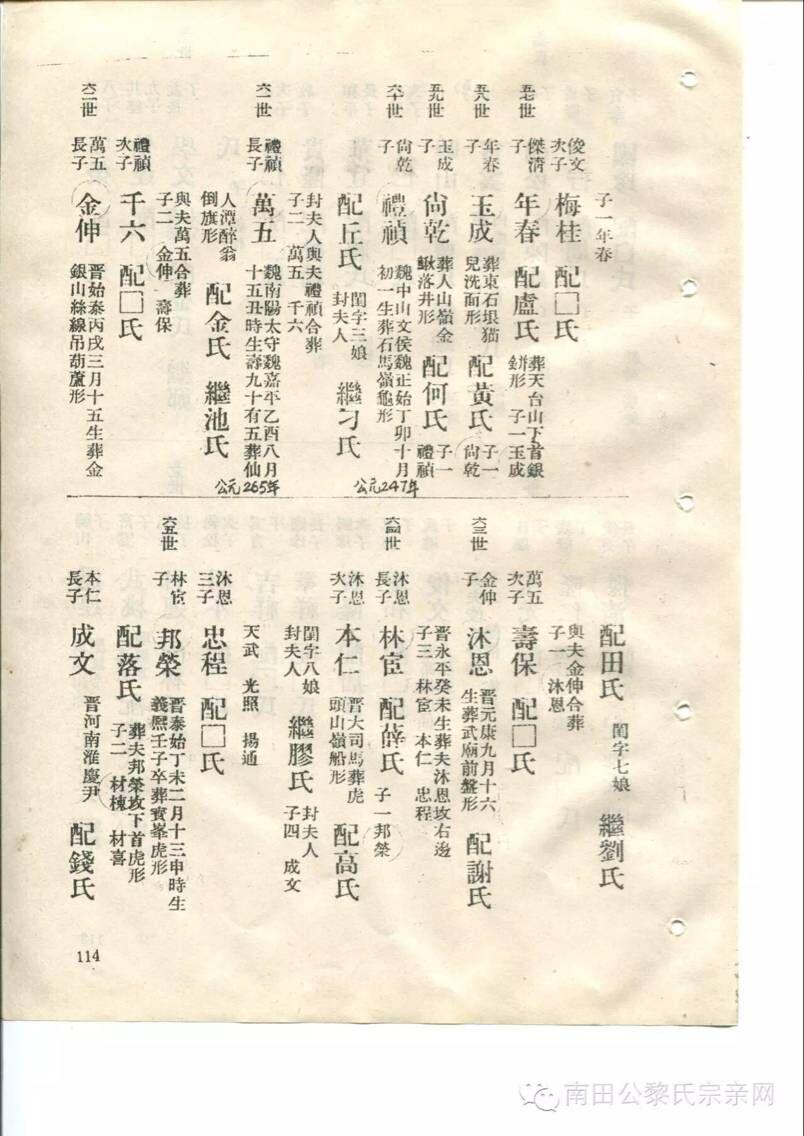 子一年春
五七世
俊文
次子
梅桂 配□氏
傑清
子
年春 配盧氏
葬天台山下首銀
鉼形 子一玉成
五八世
年春
子
玉成
葬東石垠猫
兒洗面形
配黃氏
子一
尙乾
五九世
玉成
子
尙乾
葬人山嶺金
鰍落井形
配何氏
子一
禮禎
六十世
尙乾
子
禮禎
魏中山文侯魏正始丁卯十月
初一生葬石馬嶺龜形
公元247年
配丘氏
閨字三娘
封夫人
繼刁氏
封夫人與夫禮禎合葬
子二 萬五 千六
六一世
禮禎
長子
萬五
魏南陽太守魏嘉平乙酉八月
十五丑時生壽九十有五葬仙
公元265年
人潭醉翁
倒旗形
配金氏 繼池氏
與夫萬五合葬
子二 金伸 壽保
禮禎
次子
千六 配□氏
六二世
萬五
長子
金伸
晋始泰丙戌三月十五生葬金
銀山絲線吊葫蘆形
配田氏 閨字七娘 繼劉氏
與夫金伸合葬
子一 沐恩
萬五
次子
壽保 配□氏
六三世
金伸
子
沐恩
晋元康九月十六
生葬武廟前盤形
配謝氏
晋永平癸未生葬夫沐恩坟右邊
子三 林宦 本仁 忠程
六四世
沐恩
長子
林宦 配薛氏 子一邦榮
沐恩
次子
本仁
晋大司馬葬虎
頭山嶺船形
配高氏
閨字八娘
封夫人
繼膠氏
封夫人
子四 成文
天武 光照 揚通
沐恩
三子
忠程 配□氏
六五世
林宦
子
邦榮
晋泰始丁未二月十三申時生
義熙壬子卒葬賓峯虎形
配落氏
葬夫邦榮坟下首虎形
子二 材棟 材喜
本仁
長子
成文 晋河南淮慶尹 配錢氏
114
南田公黎氏宗亲网